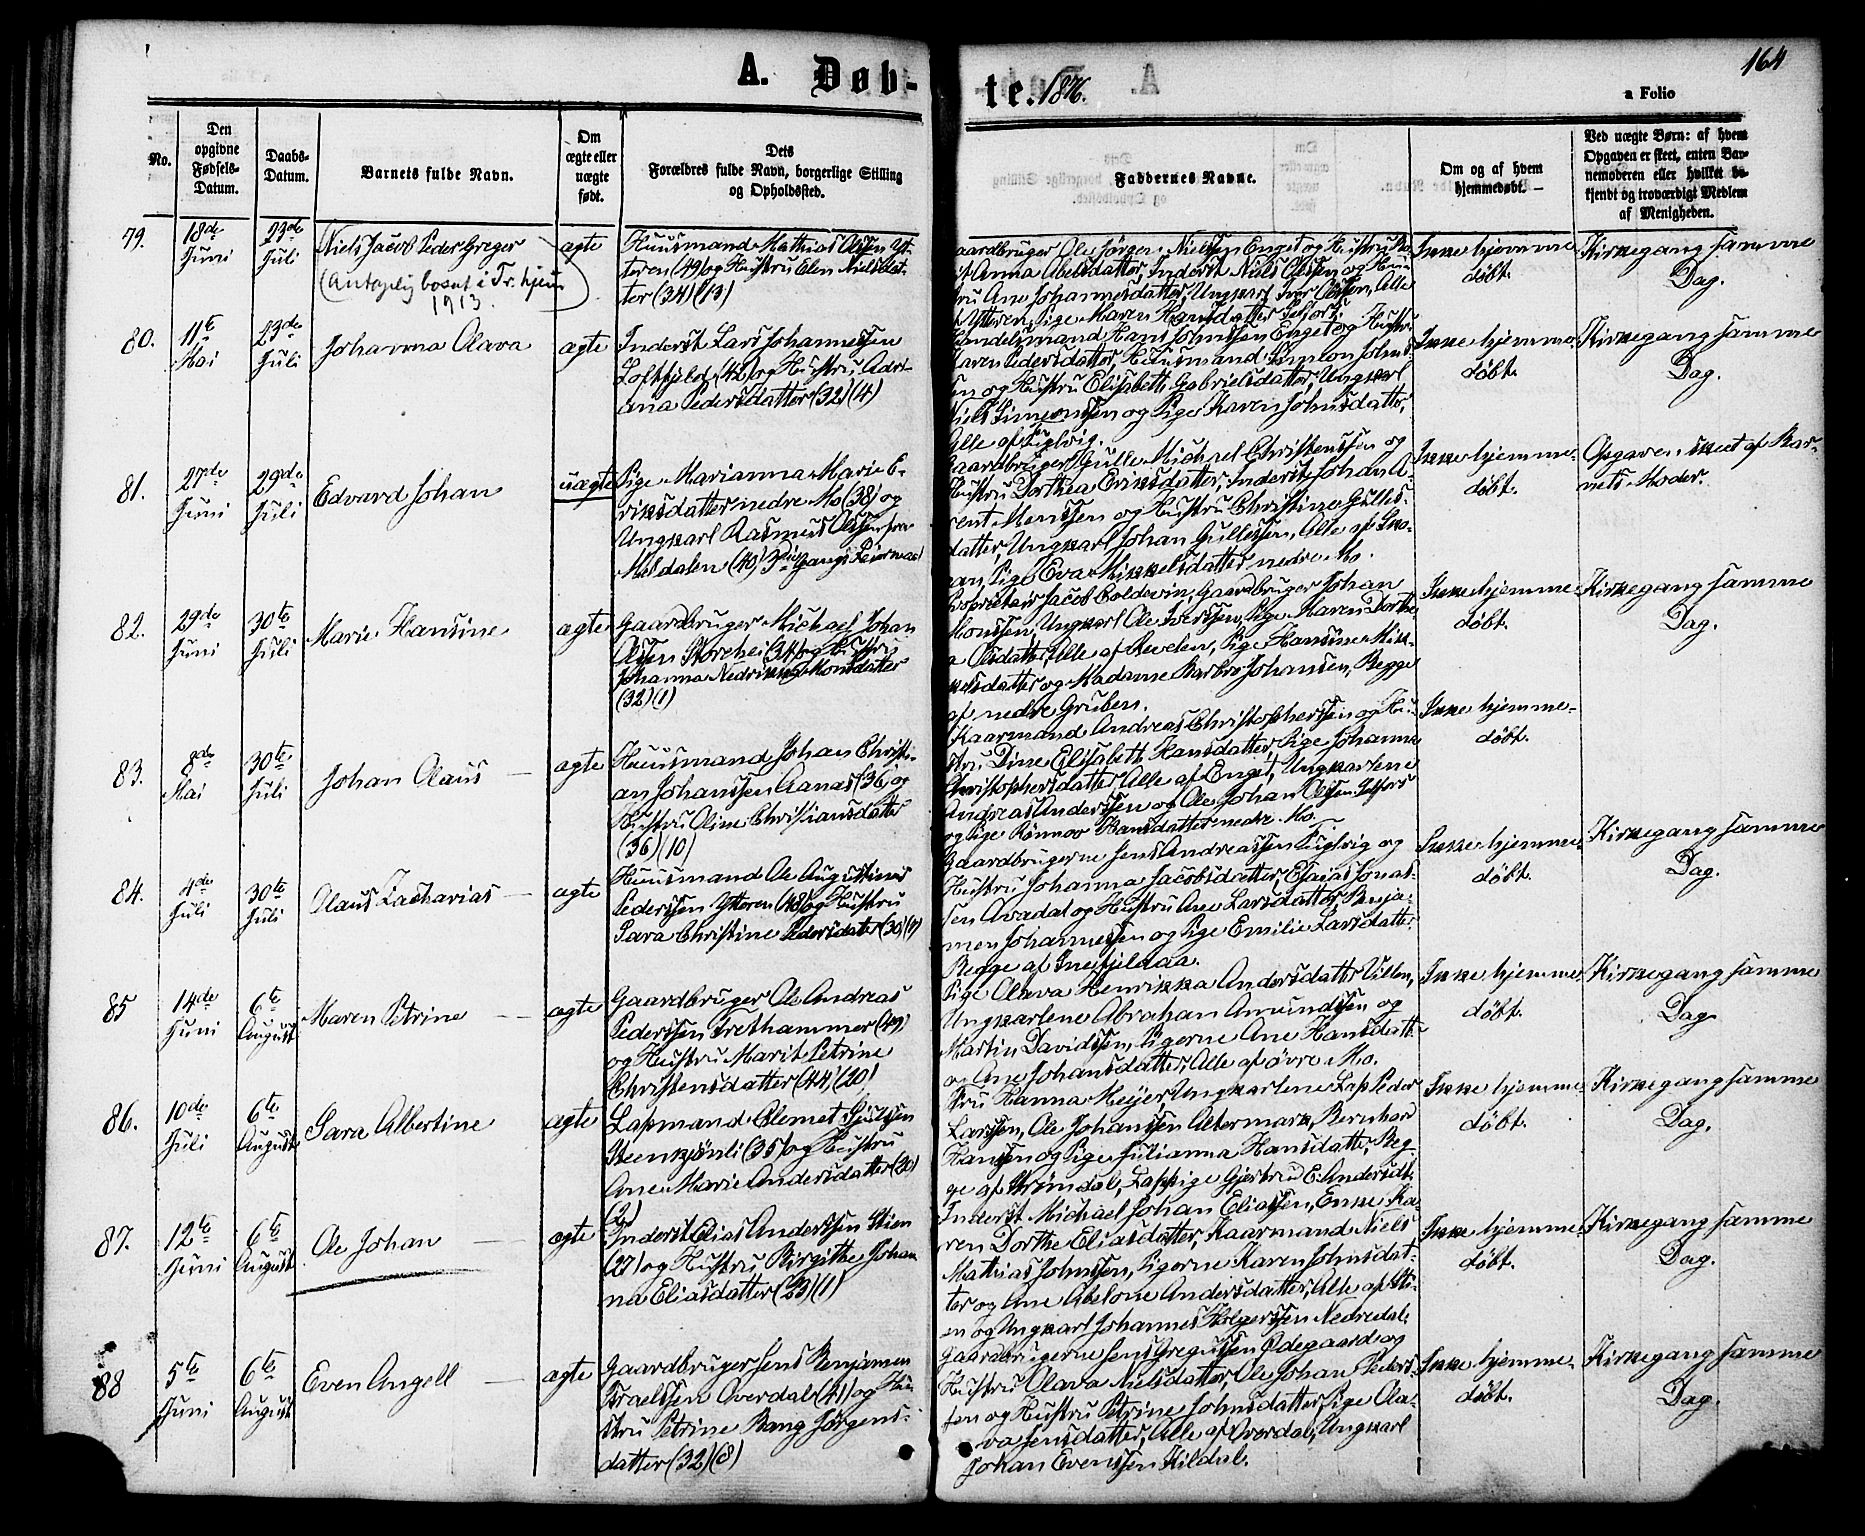 164
A. Døb-
te. 1876.
a Folio
No.
Den
opgivne
Fødsels-
Datum.
Daabs-
Datum.
Barnets fulde Navn.
Om
ægte eller
uægte
født.
Dets
Forældres fulde Navn, borgerlige Stilling
og Opholdssted.
Faddernes Navne.
Om og af hvem
hjemmedøbt.
Ved uægte Børn: af hvem
Opgaven er skeet, enten Bar-
nemoderen eller hvilket be-
kjendt og troværdigt Medlem
af Menigheden.
79.
18de
Juni
23de
Juli
Niels Jacob Peder Greger
(Antagelig bosat i Tr.hjem
1913.
ægte
Huusmand Mathias Olsen Yt-
teren (49) og Hustru Elen Nielsdat-
ter (34) (13)
aardbruger Ole Jørgen Nielsen Enget og Hustru
Anna Abelsdatter, Inderst Niels Olssen og Hu-
tru Ane Johannesdatter, Ungkarl Iver Olssen, Alle
af Ytteren, Pige Maren Hansdatter Selfors.
Ikke hjemme
døbt.
Kirkegang samme
Dag.
80.
11te
Mai
23de
Juli
Johanna Olava
ægte
Inderst Lars Johannessen
Loftfjeld (42) og Hustru Adri-
ana Pedersdatter (32) (4)
Handelsmand Hans Johnssen Enget og Hustru
Maren Pedersdatter, Huusmand Simeon Johns-
sen og Hustru Elisabeth Gabrielsdatter, Ungkarl
Niels Simeonssen og Pige Karen Johnsdatter,
Alle af
Ikke hjemme
døbt.
Kirkegang samme
Dag.
81.
27de
Juni
29de
Juli
Edvard Johan
uægte
Pige Marianna Marie E-
riksdatter nedre Mo (38) og
Ungkarl Rasmus Olssen fra
Meldalen (40) 3die Gangs Leiermaal
Gaardbruger Gulle Michael Christenssen og
Hustru Dorthea Eriksdatter, Inderst Johan A-
rent Monssen og Hustru Christine Gulles-
datter, Ungkarl Johan Gullessen, Alle af
Pige Eva Mikkelsdatter nedre Mo.
Ikke hjemme-
døbt.
Opgaven skeet af Bar-
nets Moder.
82.
29de
Juni
30te
Juli
Marie Hansine
ægte
Gaardbruger Michael Johan
Olsen Storehei (34) og Hustru
Johanna Monsdatter
(32) (1)
Proprietair Jacob Coldevin, Gaardbruger Johan
Monssen, Ungkarl Ole Iverssen, Pige Maren Dorthe
Olsdatter, Alle af Revelen, Pige Hansine Mik-
kelsdatter og Madame Barbro Johansen, Begge
af nedre Gruben.
Ikke hjemme-
døbt.
Kirkegang samme
Dag.
83.
8de
Mai
30te
Juli
Johan Olaus
ægte
Huusmand Johan Christi-
an Johanssen Aanæs (36) og
Hustru Oline Christiansdatter
(36) (10)
Kaarmand Andreas Christophersen og Hu-
stru Dine Elisabeth Hansdatter, Pige Johanna
Christophersdatter, Alle af Enget, Ungkarlene
Andreas Anderssen og Ole Johan Olssen Selfors
og Pige Rønnov Hansdatter nedre Mo.
Ikke hjemme-
døbt.
84.
4de
Juli
30te
Juli
Olaus Zacharias
ægte
Huusmand Ole Augustinus
Pederssen Ytteren (48) og Hustru
Sara Christine Pedersdatter (30) (7)
Gaardbrugerne Jens Andreassen og
Hustru Johanna Jacobsdatter, Esaias Jonas-
sen Avadal og Hustru Ane Larsdatter, Benja-
men Johannessen og Pige Emilie Larsdatter
Begge af
Ikke hjemme-
døbt.
Kirkegang samme
Dag.
85
14de
Juni
6te
August
Maren Petrine
ægte
Gaardbruger Ole Andreas
Pederssen Trethammer (49)
og Hustru Marit Petrine
Christensdatter (44) (20)
Pige Olava Henrikka Andersdatter Villen,
Ungkarlene Abraham Amundssen og
Martin Davidssen, Pigerne Ane Hansdatter
og Ane Johansdatter, Alle af øvre Mo.
Ikke hjemme
døbt.
Kirkegang samme
Dag
86.
10de
Juli
6te
August
Sara Albertine
ægte
Lapmand Clemet
Steenkjønli (35) og Hustru
Ane Marie Andersdatter (20)
(2)
Fru Hanna Meyer, Ungkarlene Lap Peder
Larssen, Ole Johanssen Altermark, Bernhard
Hanssen og Pige Julianna Hansdatter, Beg-
ge af Strømdal, Lappige Gjertru E. Andersdt.
Ikke hjemme
døbt.
Kirkegang samme
Dag.
87.
12te
Juni
6te
August
Ole Johan
ægte
Inderst Elias Anderssen Stien
(27) og Hustru Birgithe Johan
na Eliasdatter (23) (1)
Inderst Michael Johan Eliassen, Enke Ka-
ren Dorthe Eliasdatter, Kaarmand Niels
Mathias Johnssen, Pigerne Karen Johnsdat-
ter og Ane Abelone Andersdatter, Alle af Sti-
en og Ungkarl Johannes Holgerssen Nedredal.
Ikke hjemme-
døbt.
Kirkegang samme
Dag.
88
5te
Juni
6te
August
Even Angell
ægte
Gaardbruger Jens Benjamen
Israelssen Overdal (41) og Hu-
stru Petrine Bang Jørgens-
datter (32) (8)
Gaardbrugerne Jens Gregussen Ødegaard og
Hustru Olava Nielsdatter, Ole Johan Peders-
sen og Hustru Petrine Johnsdatter, Pige Ola-
va Jensdatter, Alle af Overdal, Ungkarl
Johan Evenssen Kildal.
Ikke hjemme-
døbt.
Kirkegang samme
Dag.